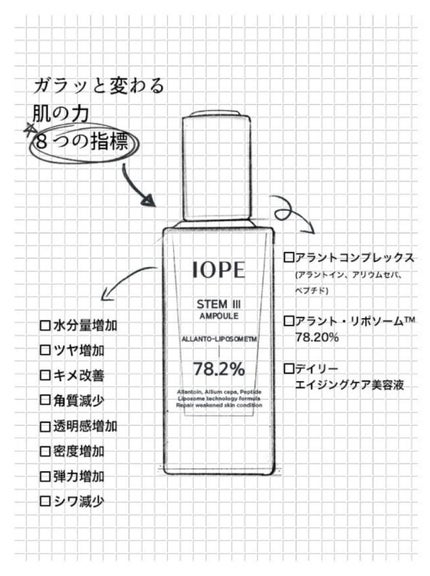 ガラッと変わる
肌の力
8つの指標
IOPE
STEM III
AMPOULE
ALLANTO-LIPOSOMETM
78.2%
Allantoin, Allium cepa, Peptide
Liposome technology formula
Repair weakened skin condition
□アラントコンプレックス
(アラントイン、アリウムセパ、
ペプチド)
□アラント・リポソーム™
78.20%
□デイリー
エイジングケア美容液
□水分量増加
□ツヤ増加
□キメ改善
□角質減少
□透明感増加
□密度増加
□弾力増加
□シワ減少